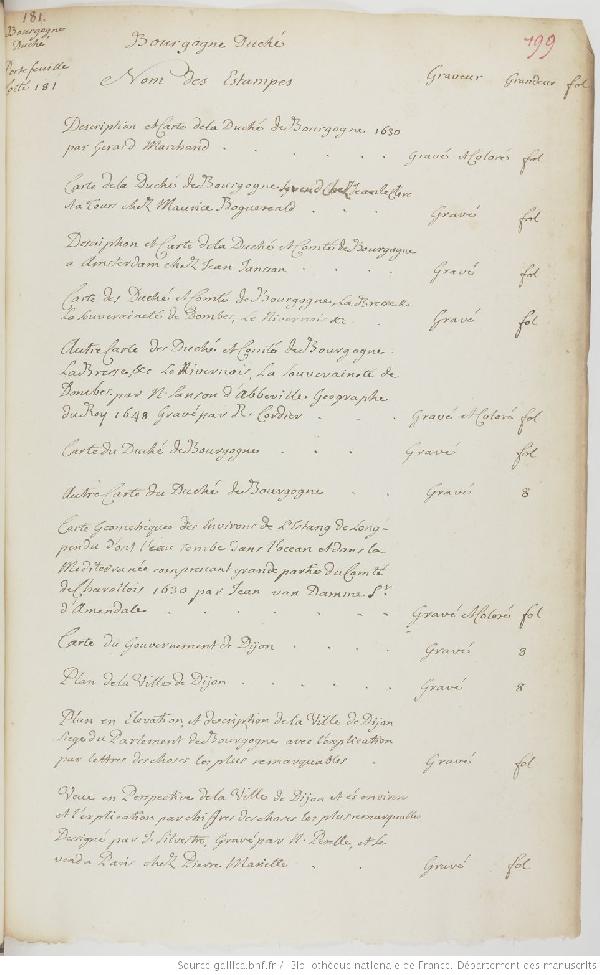 181.
Bourgogne
Duché
Portefeuille
cotté 181
Bourgogne Duché
199
Nom des Estampes Graveur Grandeur fol
Description et Carte de la Duché de Bourgogne 1630
par Gerard Marchand . . . . . Gravé et Coloré fol
Carte de la Duché de Bourgogne se vend chez Jean le Clerc
A Tours chez Maurice Boguereald . . . Gravé fol
Description et Carte de la Duché et Comté de Bourgogne
a Amsterdam chez Jean Janson . . . . Gravé fol
Carte des Duché et Comté de Bourgogne, La Bresse &c
La Souveraineté de Dombes, Le Nivernois &c. . . Gravé fol
Autre Carte des Duché et Comté de Bourgogne
La Bresse, &c Le Nivernois, La Souveraineté de
Dombes, par N. Sanson d'Abbeville, Geographe
du Roy 1648 Gravé par R. Cordier . . . Gravé et Coloré fol
Carte du Duché de Bourgogne . . . Gravé fol
Autre Carte du Duché de Bourgogne . . Gravé 8
Carte Geometriques des Environs de L'Estang de Long-
pendu d'ont l'eau tombe dans l'ocean et dans la
Mediterranée comprenant grande partie du Comté
de Charolois 1630 par Jean van Damme Sr.
d'Amendale . . . . . . Gravé et Coloré fol
Carte du Gouvernement de Dijon . . . . Gravé 8
Plan de la Ville de Dijon . . . . . Gravé 8
Plan en Elevation, et description de la Ville de Dijon
Siege du Parlement de Bourgogne avec l'explication
par lettres des choses les plus remarquables . Gravé fol
Veue en Perspective de la Ville de Dijon et és environs
et l'explication par chiffres des choses les plus remarquables
Designé par I. Silvestre, Gravé par N. Perelle, et se
vend a Paris chez Pierre Mariette . . . Gravé fol
Source gallica.bnf.fr / Bibliothèque nationale de France. Département des manuscrits